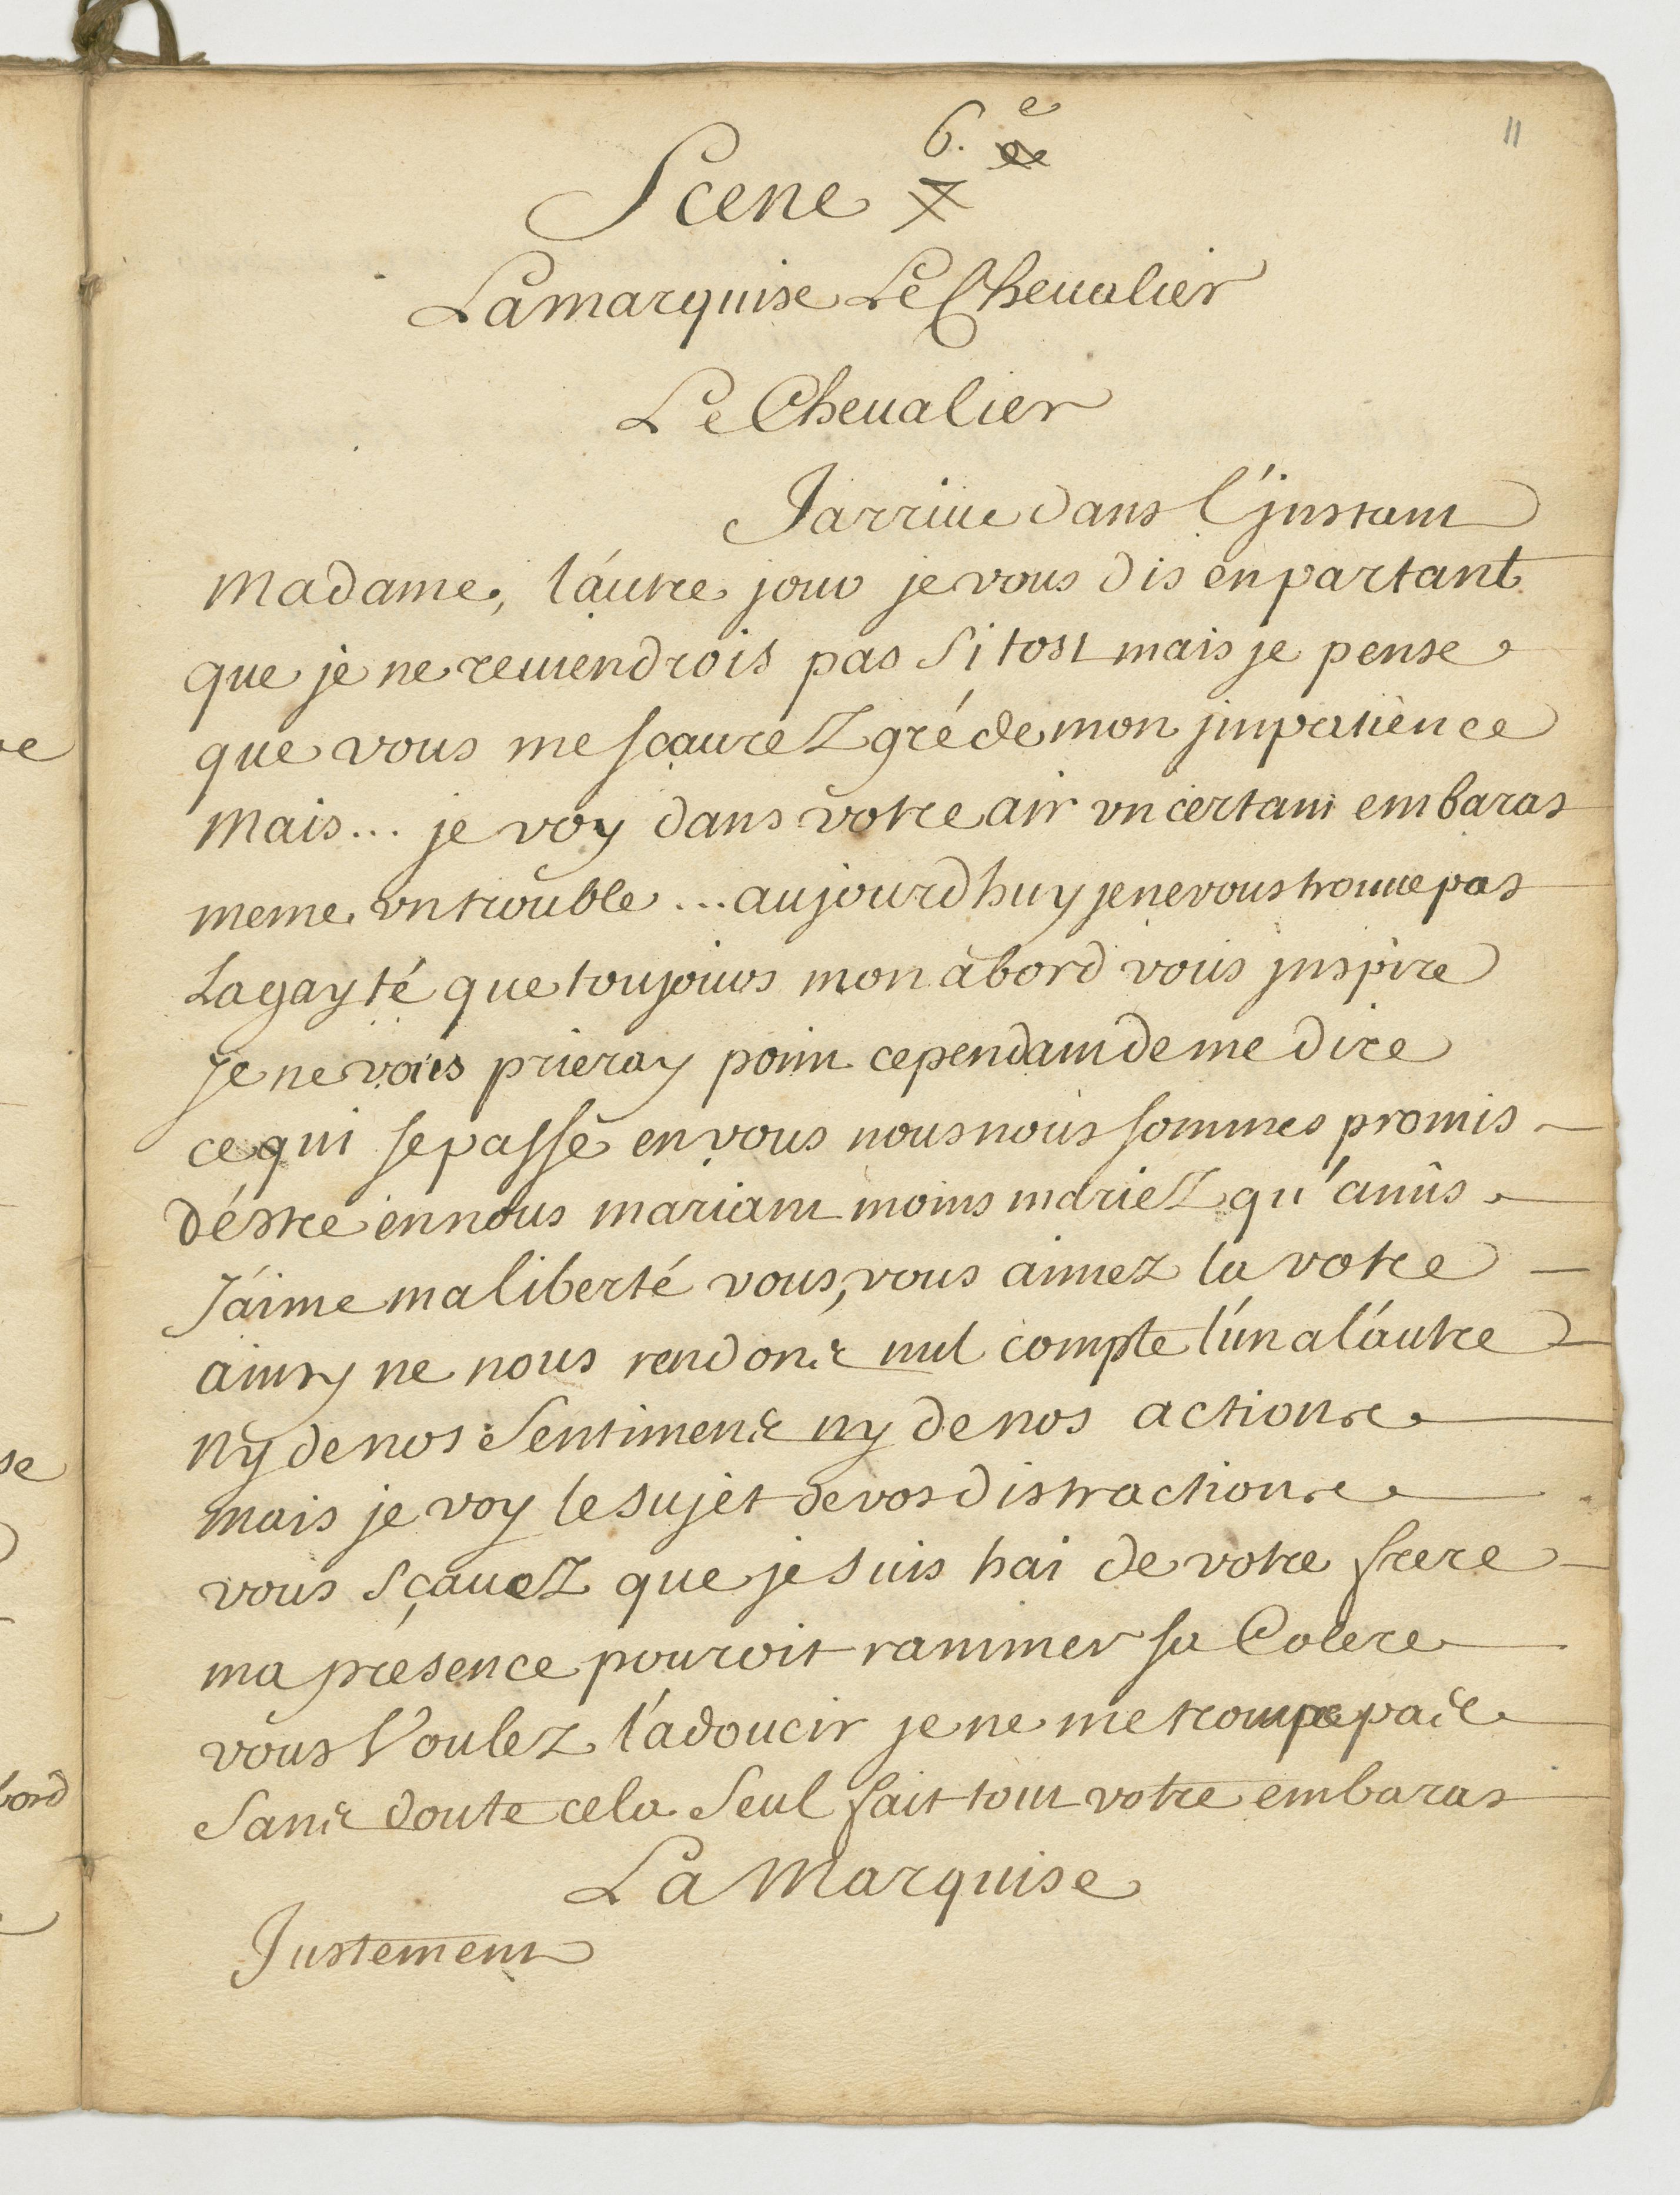 11
6.e
Scene
La marquise Le Cheualier
Le Cheualier
Jarriue dans l'jnstant
Madame, l'autre jour je vous dis en partant
que je ne reuiendrois pas si tost mais je pense
que vous me sçaurez gré de mon jmpatience
Mais... je voy dans votre air vn certain embaras
meme vn trouble... aujourdhuy je ne vous trouue pas
La gayté que toujours mon abord vous jnspire
Je ne vous prieray point cependant de me dire
ce qui se passe en vous nous nous sommes promis
d'éstre en nous mariant moins mariez qu'amis
J'aime ma liberté vous, vous aimez la votre
ainsy ne nous rendons nul compte l'un a l'autre
ny de nos sentimens ny de nos actions
mais je voy le sujet de vos distractions
vous sçauez que je suis hai de votre frere
ma presence pouroit ranimer sa Colere
vous Voulez l'adoucir je ne me trompe pas
Sans doute cela seul fait tout votre embaras
La Marquise
Justement
re
se
bord